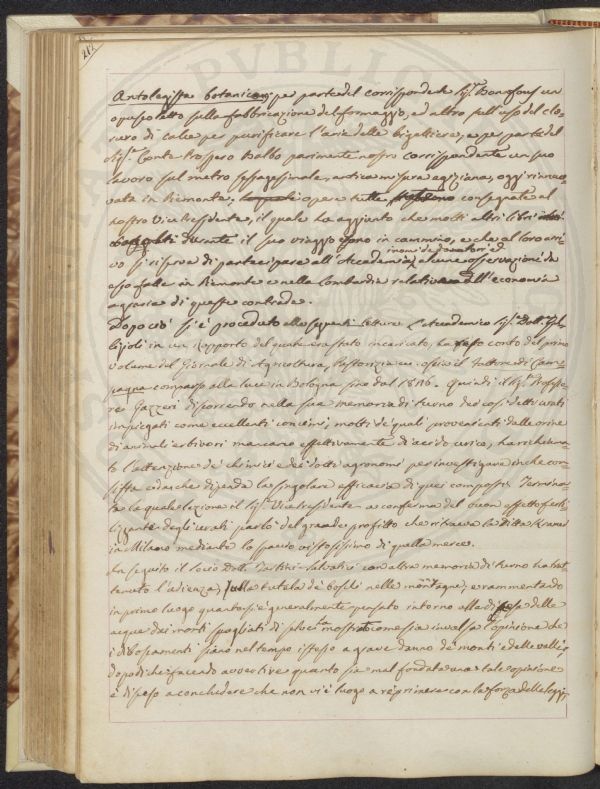 212
Antologista botanico; per parte del corrispondente Sig.r Bonafous un
opuscoletto sulla fabbricazione del formaggio, ed altro sull'uso del clo-
ruro di calce per purificare l'aria delle bigattiere, e per parte del
Sig.r Conte Prospero Balbo parimente nostro corrispondente un suo
lavoro sul metro sessagesimale, antica misura egiziana, oggi rinno-
vata in Piemonte; opere tutte consegnate al
nostro Vice Presidente, il quale ha aggiunto che molti altri libri
durante il suo viaggio sono in cammino, e che al loro arri-
i nomi de' donatori ed
vo si riserva di partecipare all'Accademia alcune osservazioni da
esso fatte in Piemonte e nella Lombardia relative all'economia
agraria di queste contrade.
Dopo ciò si è proceduto alle seguenti letture. L'Accademico Sig.r Dott.
in un rapporto del quale era stato incaricato, ha reso conto del primo
volume del Giornale di Agricoltura, Pastorizia ec. ossia il Fattore di Cam-
pagna comparso alla luce in Bologna fino dal 1846. Quindi il Sig. Professo-
re Gazzeri discorrendo nella sua memoria di turno dei così detti urati
impiegati come eccellenti concimi, molti de' quali provenienti dalle orine
di animali erbivori mancano effettivamente di acido urico, ha richiama-
to l'attenzione de' chimici e dei dotti agronomi per investigare in che con-
sista e da che dipenda la singolare efficacia di quei composti. Termina-
ta la quale lezione il Sig. Vice Presidente a conferma del buon effetto ferti-
lizzante degli urati parlò del grande profitto che ritraeva la Ditta Kramer
in Milano mediante lo spaccio vistosissimo di quella merce.
In seguito il socio Dott. Tartini-Salvatici con altra memoria di turno ha trat-
tenuto l'udienza, sulla tutela de' boschi nelle montagne, e rammentando
in primo luogo quanto si è generalmente pensato intorno alla discesa delle
acque dai monti spogliati di mostrato come sia invalsa l'opinione che
i disboscamenti siano nel tempo istesso a grave danno de' monti e delle valli;
dopo di che facendo avvertire quanto sia mal fondata una tale opinione
è disceso a concludere che non vi è luogo a reprimere con la forza delle leggi,